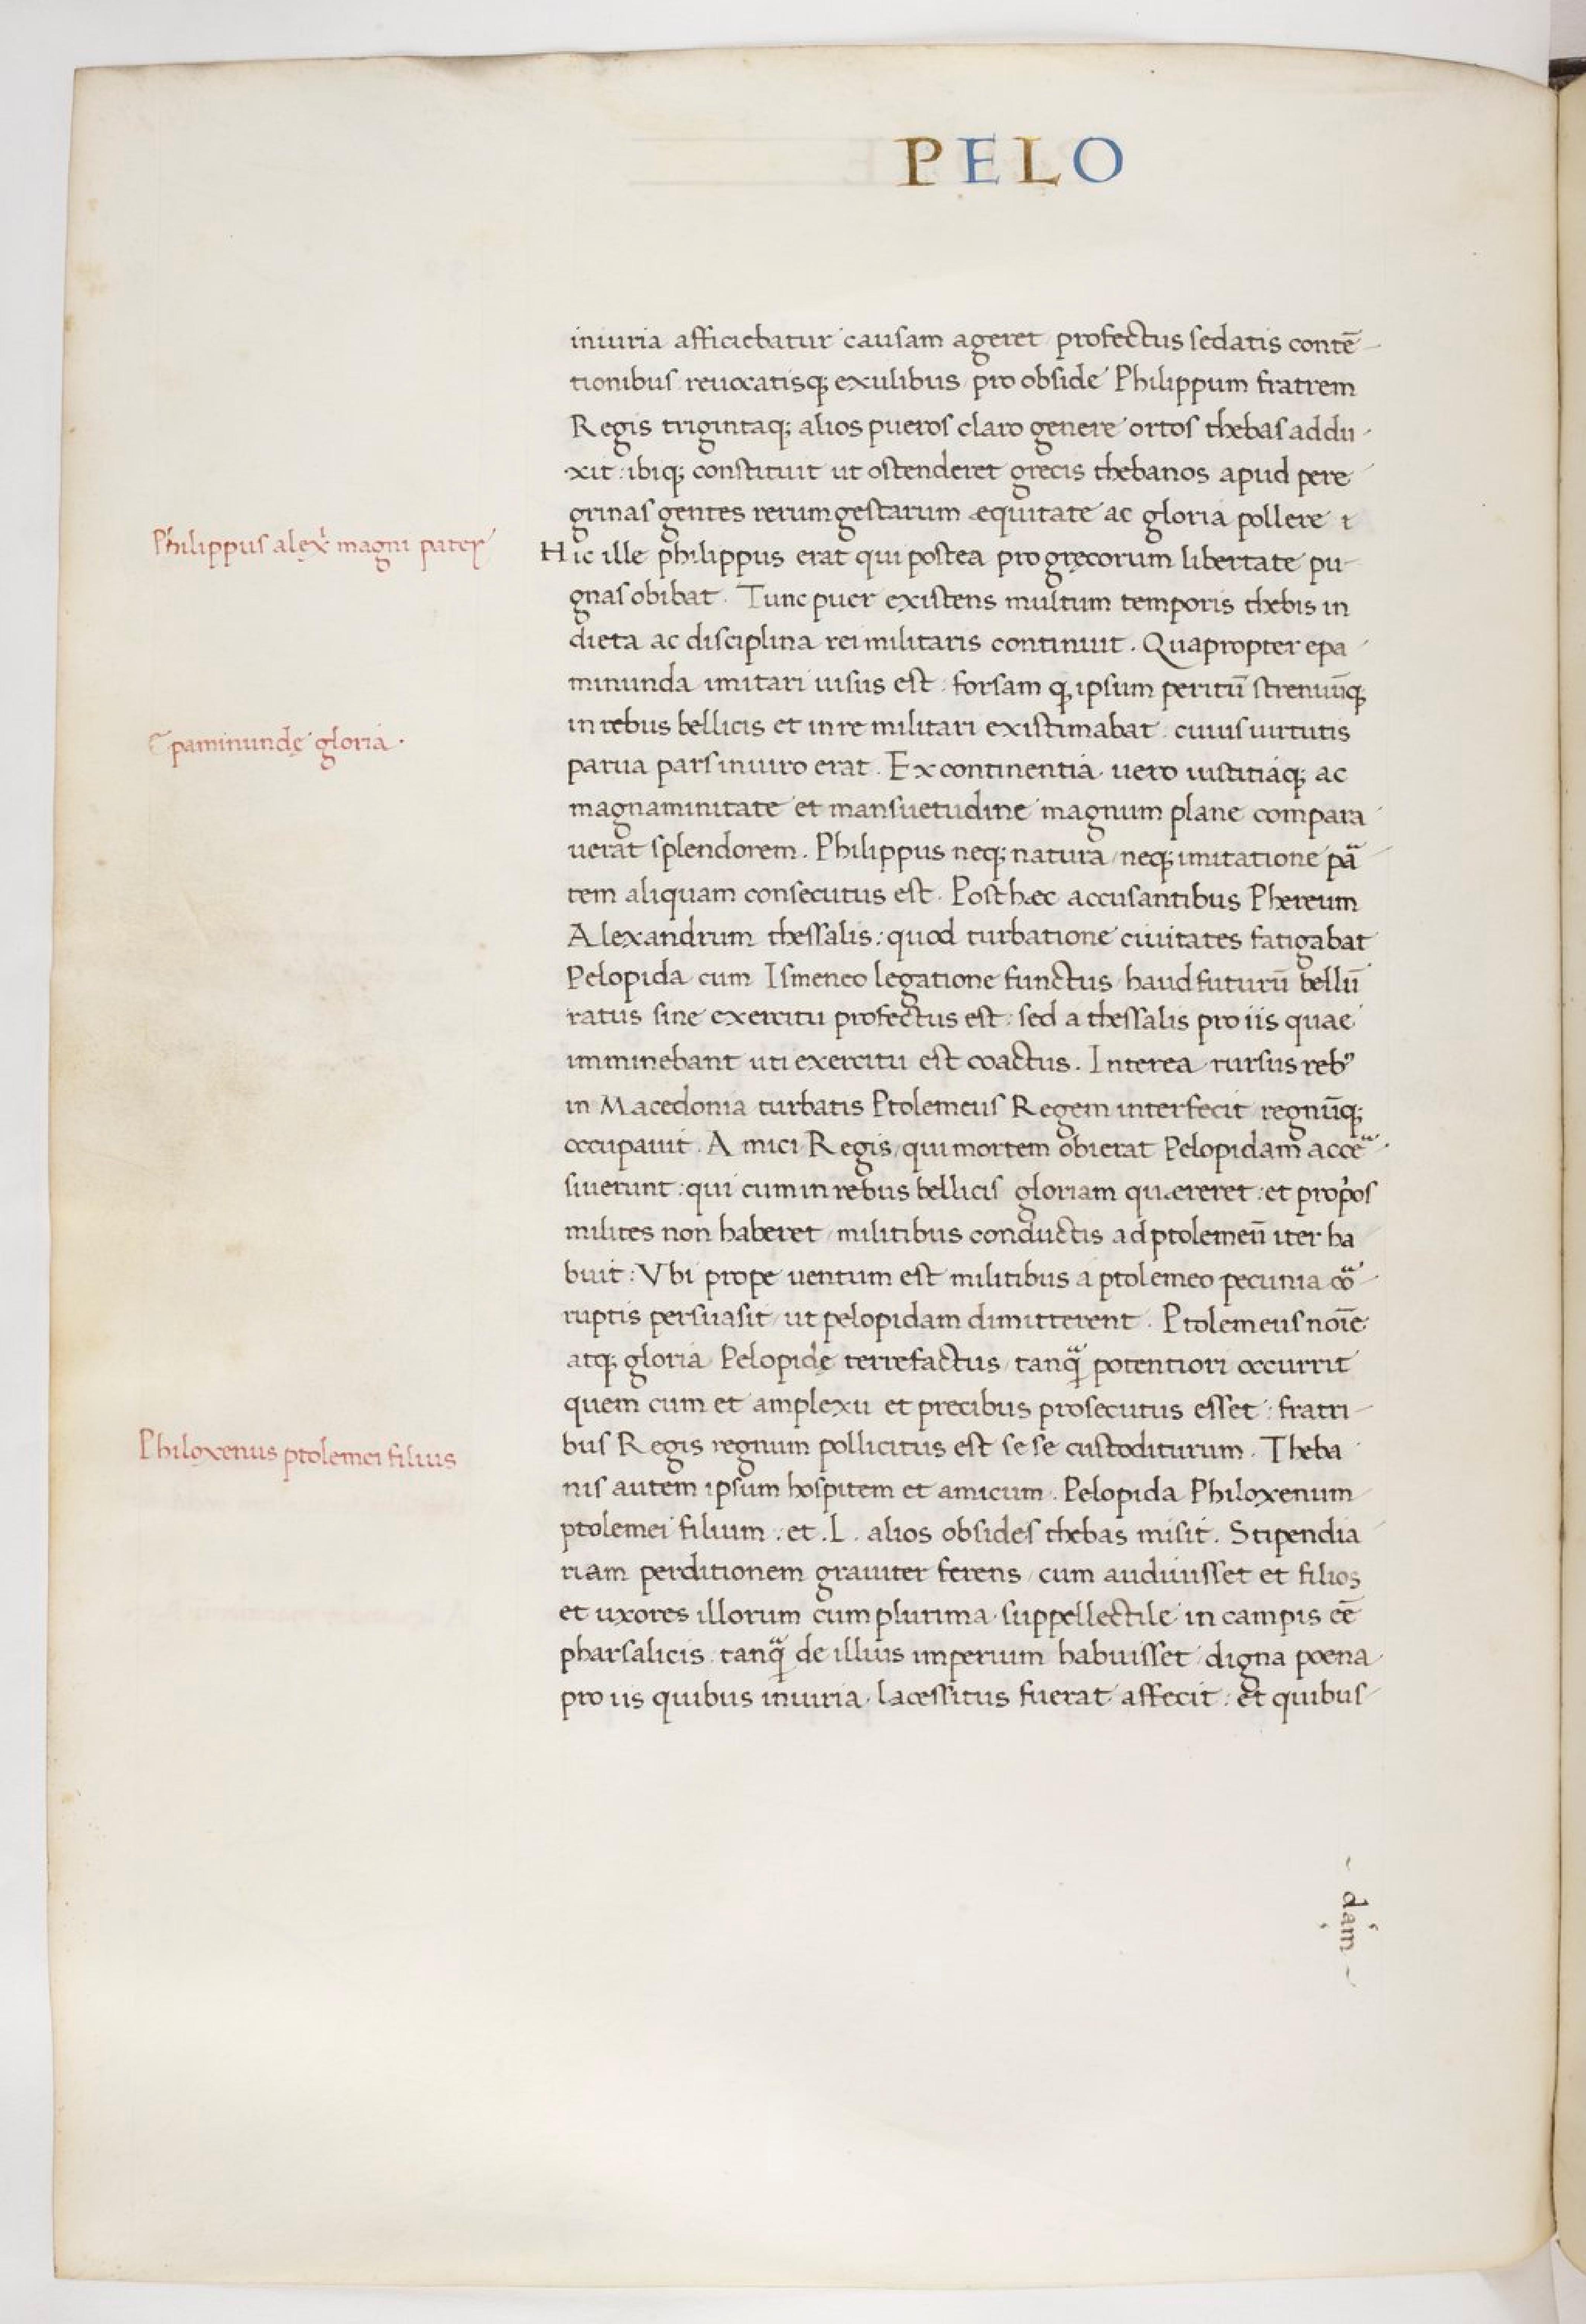 PELO
iniuria afficiebatur causam ageret / profectus sedatis contē-
tionibus reuocatisq; exulibus / pro obside Philippum fratrem
Regis trigintaq; alios pueros claro genere ortos thebas addu-
xit: ibiq; constituit ut ostenderet grecis thebanos apud pere-
grinas gentes rerum gestarum æquitate ac gloria pollere
Philippus alex magni pater
Hic ille philippus erat qui postea pro gręcorum libertate pu-
gnas obibat. Tunc puer existens multum temporis thebis in
dieta ac disciplina rei militaris continuit. Quapropter epa-
minunda imitari uisus est: forsam ꝙ ipsum peritū strenuūq;
Epaminundę gloria.
in rebus bellicis et in re militari existimabat: cuius uirtutis
parua pars in uiro erat. Ex continentia uero iustitiaq; ac
magnaminitate et mansuetudine magnum plane compara-
uerat splendorem. Philippus neq; natura / neq; imitatione pa-
tem aliquam consecutus est. Post hæc accusantibus Phereum
Alexandrum thessalis: quod turbatione ciuitates fatigabat
Pelopida cum Ismeneo legatione functus / haud futurū bellū
ratus sine exercitu profectus est: sed a thessalis pro iis quae
imminebant uti exercitu est coactus. Interea rursus rebꝰ
in Macedonia turbatis Ptolemeus Regem interfecit regnūq;
occupauit. Amici Regis / qui mortem obierat Pelopidam acce-
siuerunt: qui cum in rebus bellicis gloriam quæreret: et propos
milites non haberet / militibus conductis ad ptolemeū iter ha-
buit: Vbi prope uentum est militibus a ptolemeo pecunia co-
ruptis persuasit / ut pelopidam dimitterent. Ptolemeus noīe
atq; gloria Pelopidę terrefactus / tanq̃ potentiori occurrit
quem cum et amplexu et precibus prosecutus esset: fratri-
bus Regis regnum pollicitus est se se custoditurum. Theba-
Philoxenus ptolemei filius
nis autem ipsum hospitem et amicum. Pelopida Philoxenum
ptolemei filium: et .L. alios obsides thebas misit. Stipendia-
riam perditionem grauiter ferens / cum audiuisset et filios
et uxores illorum cum plurima suppellectile in campis eē
pharsalicis tanq̃ de illius imperium habuisset / digna poena
pro iis quibus iniuria lacessitus fuerat affecit: et quibus-
~ dam ~